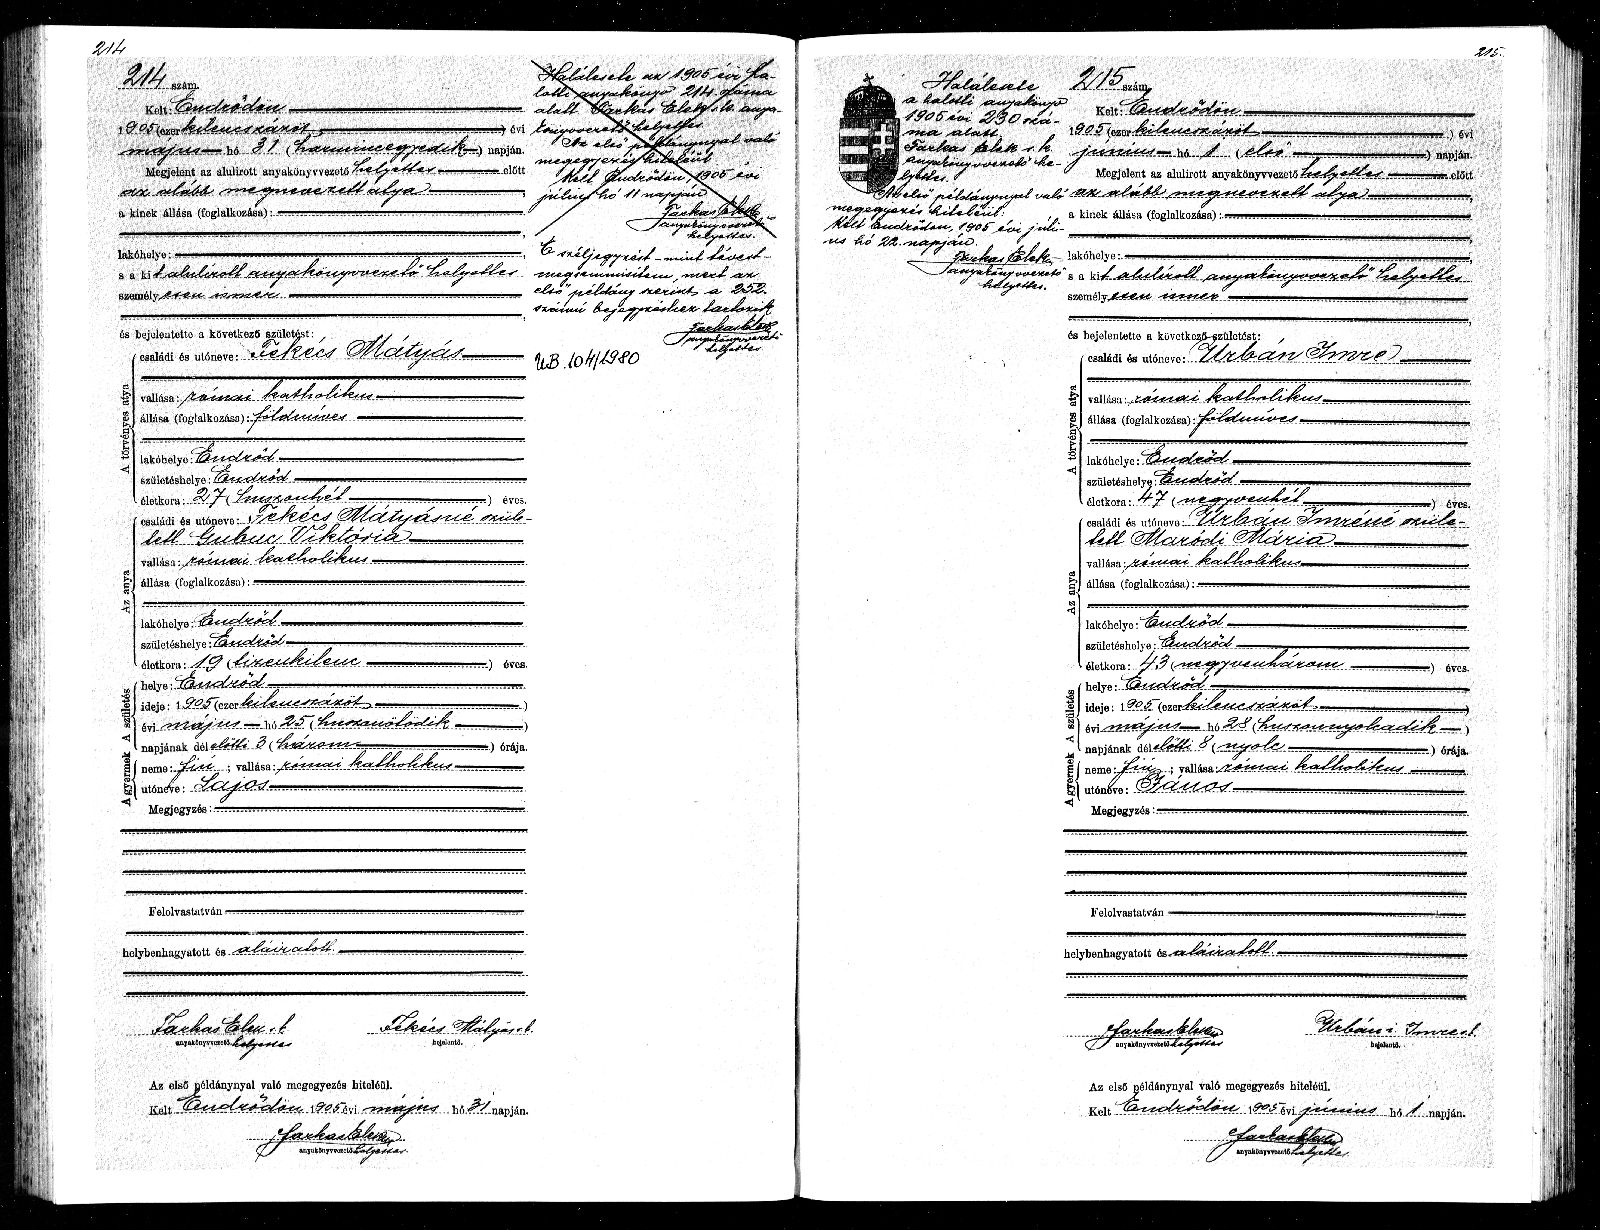 214
214 szám.
Kelt Endrődön
1905 (ezer kilencszázöt) évi
május hó 31 (harmincegyedik) napján.
Megjelent az alulirott anyakönyvvezető helyettes előtt
az alább megnevezett atya
a kinek állása (foglalkozása):
lakóhelye:
s a kit alulírott anyakönyvvezető helyettes
személyesen ismer
és bejelentette a következő születést:
A törvényes atya
családi és utóneve: Fekécs Mátyás
vallása: római katholikus
állása (foglalkozása): földmíves
lakóhelye: Endrőd
születéshelye: Endrőd
életkora: 27 (huszonhét) éves.
Az anya
családi és utóneve: Fekécs Mátyásné szüle-
tett Gubuc Viktória
vallása: római katholikus
állása (foglalkozása):
lakóhelye: Endrőd
születéshelye: Endrőd
életkora: 19 (tizenkilenc) éves.
A születés
helye: Endrőd
ideje: 1905 (ezer kilencszázöt)
évi május hó 25 (huszonötödik)
napjának dél előtti 3 (három) órája.
A gyermek
neme: fiú; vallása: római katholikus
utóneve: Lajos
Megjegyzés:
Felolvastatván
helybenhagyatott és aláiratott.
Farkas Elek s. k.
anyakönyvvezető helyettes
Fekécs Mátyás s. k.
bejelentő.
Az első példánynyal való megegyezés hiteléül.
Kelt Endrődön 1905 évi május hó 31 napján.
Farkas Elek
anyakönyvvezető helyettes.
Halálesete az 1905 évi ha-
lotti anyakönyv 214. száma
alatt Farkas Elek s. k. anya-
könyvvezető helyettes.
Az első példánynyal való
megegyezés hiteléül
Kelt Endrődön, 1905 évi
július hó 11 napján
Farkas Elek
anyakönyvvezető
helyettes.
E széljegyzést – mint tévest –
megsemmisítem, mert az
első példány szerint a 252.
számú bejegyzéshez tartozik
Farkas Elek
anyakönyvvezető
helyettes
UB. 104/1980
215.
Halálesete
a halotti anyakönyv
1905 évi 230 szá-
ma alatt.
Farkas Elek s. k.
anyakönyvvezető he-
lyettes.
Az első példánynyal való
megegyezés hiteléül:
Kelt Endrődön, 1905 évi júli-
us hó 22. napján.
Farkas Elek
anyakönyvvezető
helyettes.
215 szám.
Kelt Endrődön
1905 (ezer kilencszázöt) évi
június hó 1 (első) napján.
Megjelent az alulirott anyakönyvvezető helyettes előtt
az alább megnevezett atya
a kinek állása (foglalkozása):
lakóhelye:
s a kit alulírott anyakönyvvezető helyettes
személyesen ismer
és bejelentette a következő születést:
A törvényes atya
családi és utóneve: Urbán Imre
vallása: római katholikus
állása (foglalkozása): földmíves
lakóhelye: Endrőd
születéshelye: Endrőd
életkora: 47 (negyvenhét) éves.
Az anya
családi és utóneve: Urbán Imréné szüle-
tett Maródi Mária
vallása: római katholikus
állása (foglalkozása):
lakóhelye: Endrőd
születéshelye: Endrőd
életkora: 43 (negyvenhárom) éves.
A születés
helye: Endrőd
ideje: 1905 (ezer kilencszázöt)
évi május hó 28 (huszonnyolcadik)
napjának dél előtti 8 (nyolc) órája.
A gyermek
neme: fiú; vallása: római katholikus
utóneve: János
Megjegyzés:
Felolvastatván
helybenhagyatott és aláiratott.
Farkas Elek
anyakönyvvezető helyettes
Urbán Imre s. k.
bejelentő.
Az első példánynyal való megegyezés hiteléül.
Kelt Endrődön 1905 évi június hó 1 napján.
Farkas Elek
anyakönyvvezető helyettes